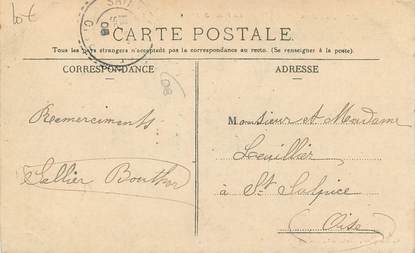 lot
CARTE POSTALE
Tous les pays étrangers n'acceptent pas la correspondance au recto. (Se renseigner à la poste).
CORRESPONDANCE
Remerciments
ADRESSE
Monsieur et Madame
à St Sulpice
Oise
08